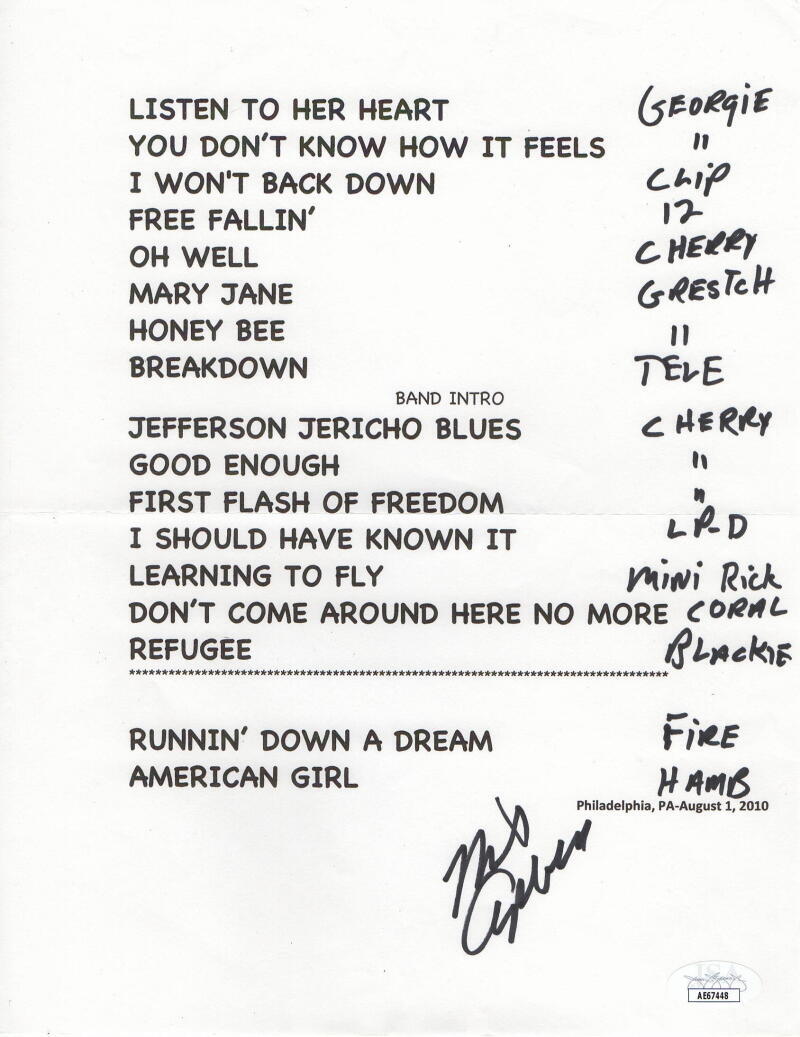 LISTEN TO HER HEART GEORGIE
YOU DON'T KNOW HOW IT FEELS "
I WON'T BACK DOWN CLIP
FREE FALLIN' 12
OH WELL CHERRY
MARY JANE GRESTCH
HONEY BEE "
BREAKDOWN TELE
BAND INTRO
JEFFERSON JERICHO BLUES CHERRY
GOOD ENOUGH "
FIRST FLASH OF FREEDOM "
I SHOULD HAVE KNOWN IT LP-D
LEARNING TO FLY MINI RICK
DON'T COME AROUND HERE NO MORE CORAL
REFUGEE BLACKIE
********************************************************************************
RUNNIN' DOWN A DREAM FIRE
AMERICAN GIRL HAMB
Philadelphia, PA-August 1, 2010
JSA
AE67448